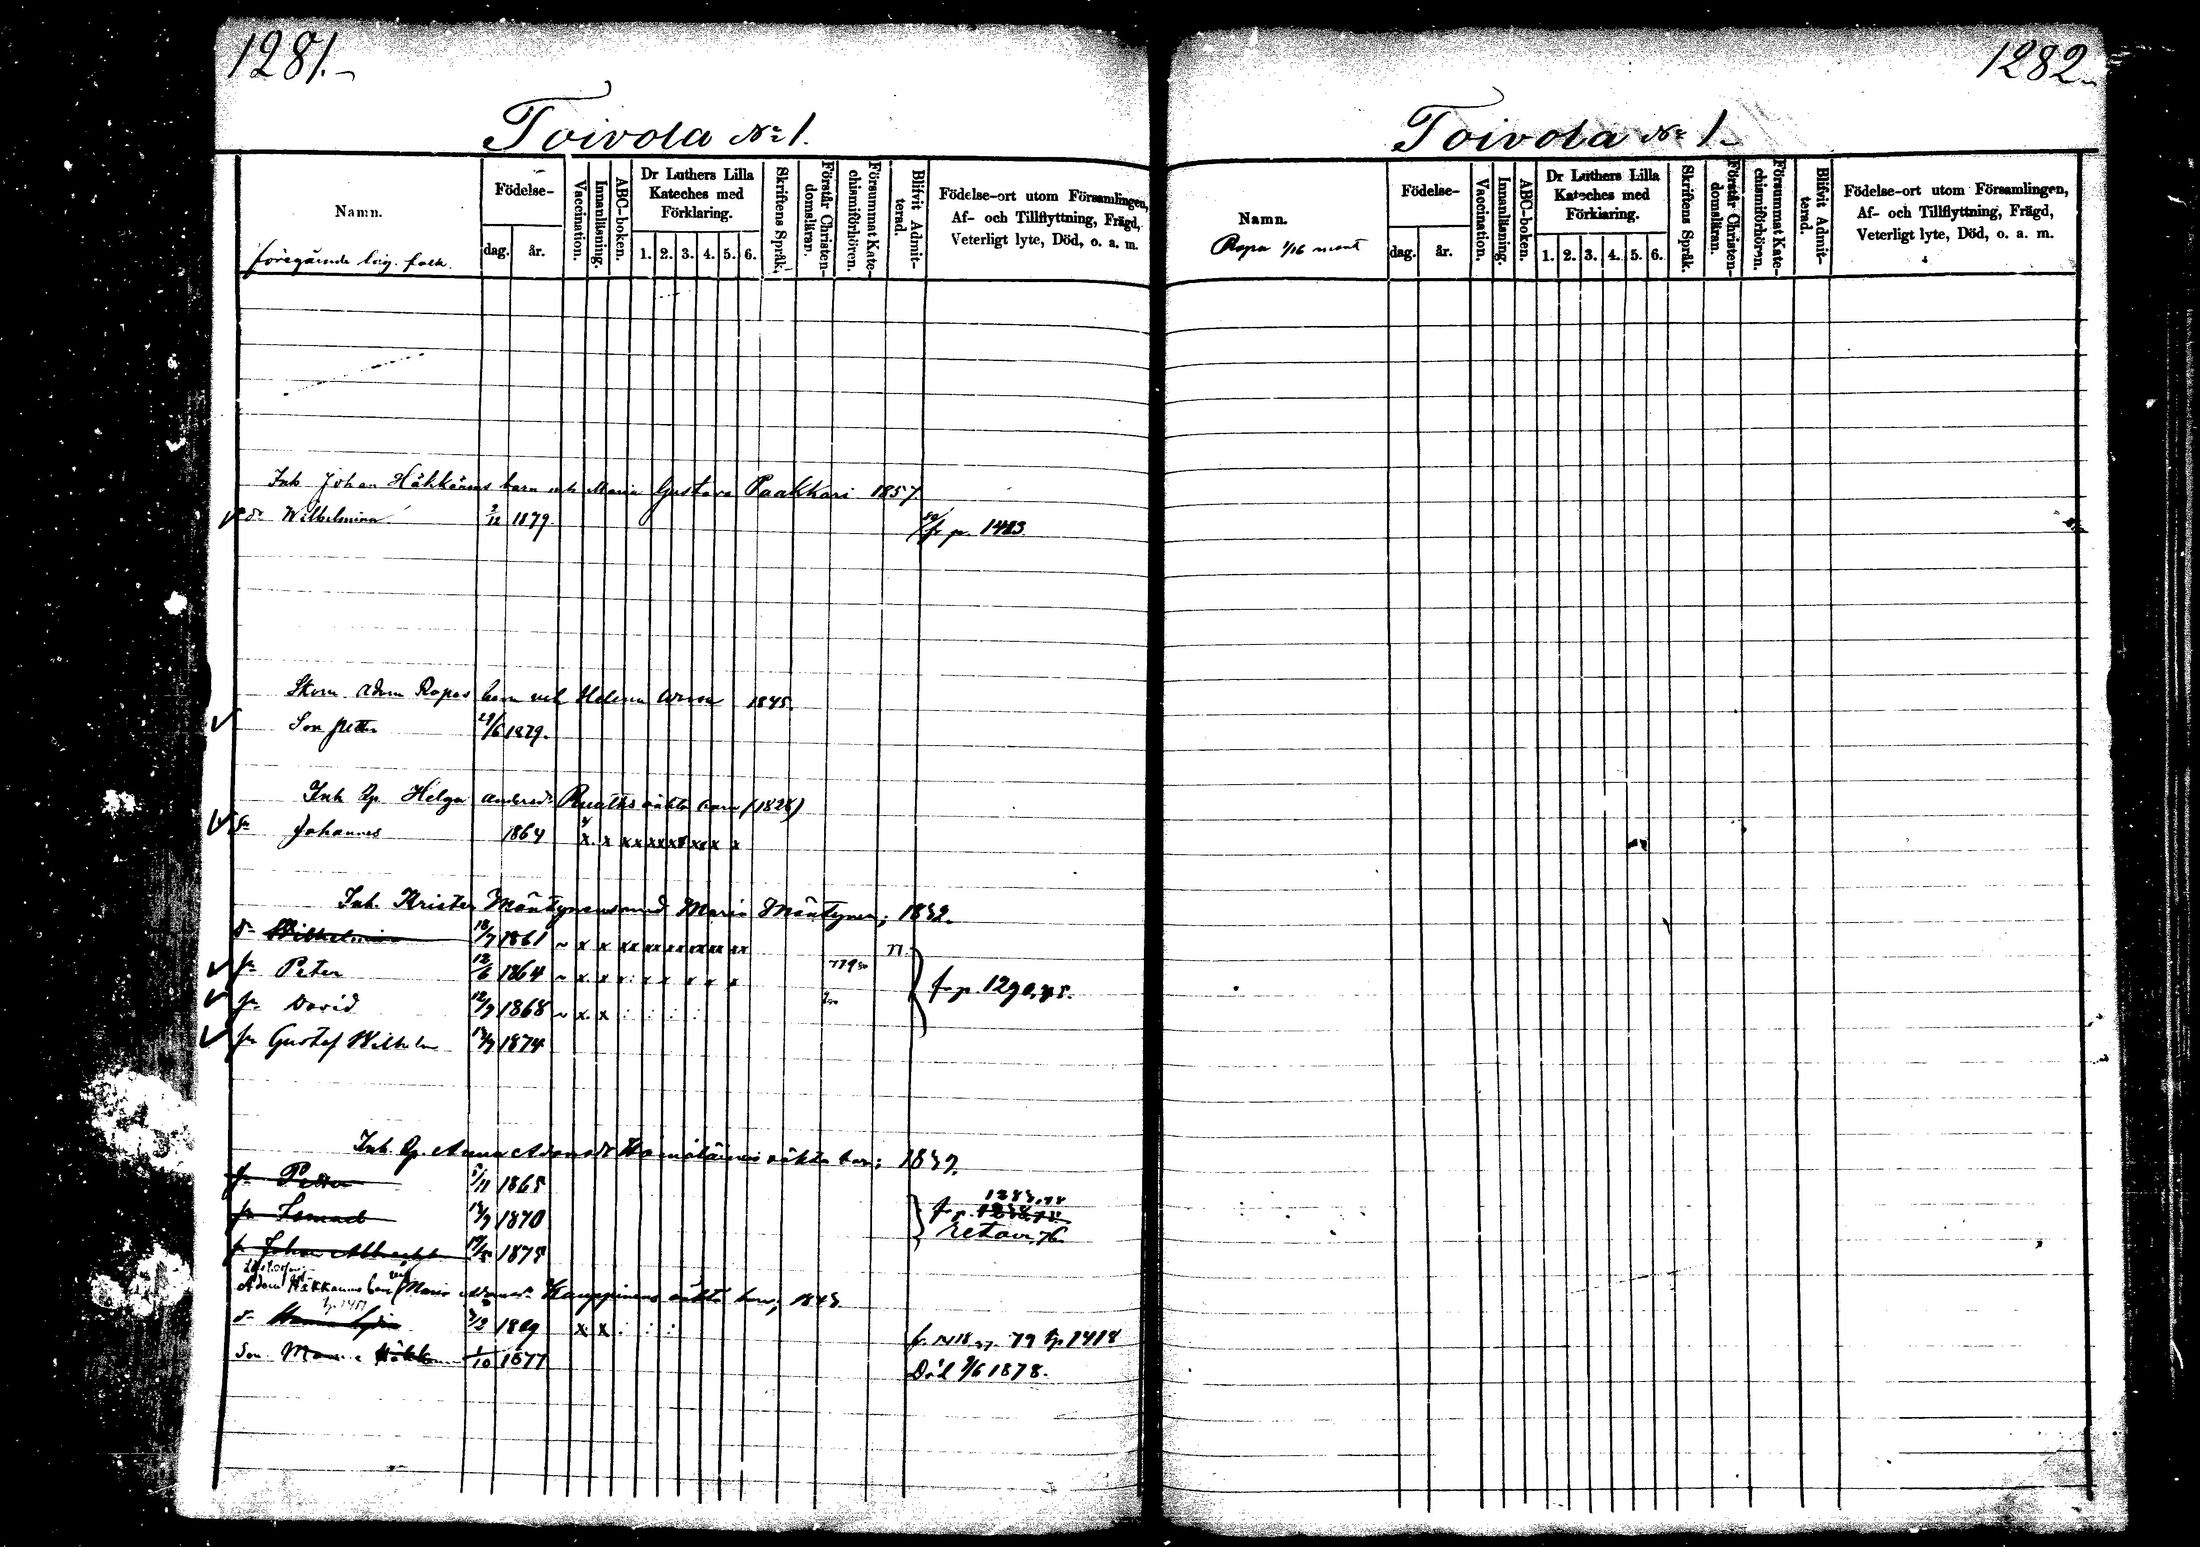 1281.
Toivola No 1.
Namn.
Födelse-
dag.
år.
Vaccination.
Innanläsning.
ABC-boken.
Dr Luthers Lilla
Kateches med
Förklaring.
1. 2. 3. 4. 5. 6.
Skriftens Språk.
Förstår Christen-
domsläran.
Försummat Kate-
chismiförhören.
Blifvit Admit-
terad.
Födelse-ort utom Församlingen,
Af- och Tillflyttning, Frägd,
Veterligt lyte, Död, o. a. m.
föregående folk.
Inh Johan Häkkäns barn och Maria Gustava Paakkari 1857.
dr Wilhelmina 2/12 1879. f. p. 1423.
Adam Ropos barn och Helena 1845.
Son petter 29/6 1879.
Inh Qp. Helga Andersdr oäkta barn (1828)
sn Johannes 1864 x x x x x x x x x x x
Inh. Krister Mäntynens med Maria Mäntynen; 1832.
dr Wilhelmina 18/7 1861 ~ x x xx xx x x x x x x xx
sn Peter 12/6 1864 ~ x x x x x x x x
sn David 12/9 1868 ~ x x
sn Gustaf Wilhelm 1874
f. p. 1290,
Inh. Qp. Anna Adamsdr oäkta barn; 1839.
sn Petter 5/11 1865
sn 1870
sn Johan Albrecht 1875
f. p. 1283,
retour 76
Adam Häkkänens barn med Maria Kauppinens oäkta barn; 1843.
dr 1869 x x
f. 79 1418
Son 1/10 1877
Död 9/6 1878.
1282.
Toivola No 1.
Namn.
Ropo 1/16 mant
Födelse-
dag.
år.
Vaccination.
Innanläsning.
ABC-boken.
Dr Luthers Lilla
Kateches med
Förklaring.
1. 2. 3. 4. 5. 6.
Skriftens Språk.
Förstår Christen-
domsläran.
Försummat Kate-
chismiförhören.
Blifvit Admit-
terad.
Födelse-ort utom Församlingen,
Af- och Tillflyttning, Frägd,
Veterligt lyte, Död, o. a. m.